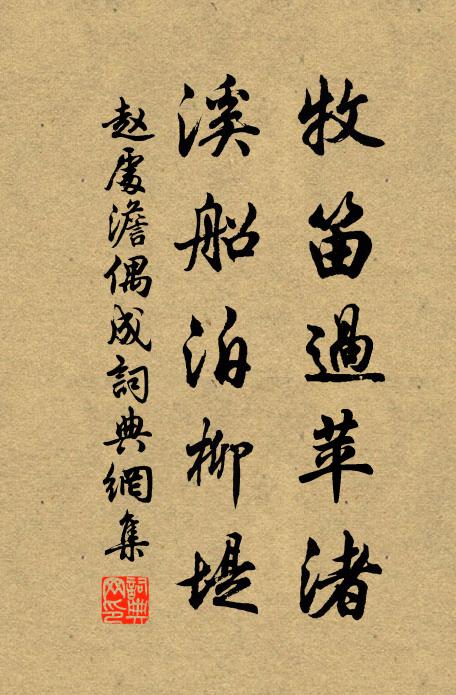 牧笛過苹渚
溪船泊柳堤
赵處澹偶成詞典網集
詞典网印